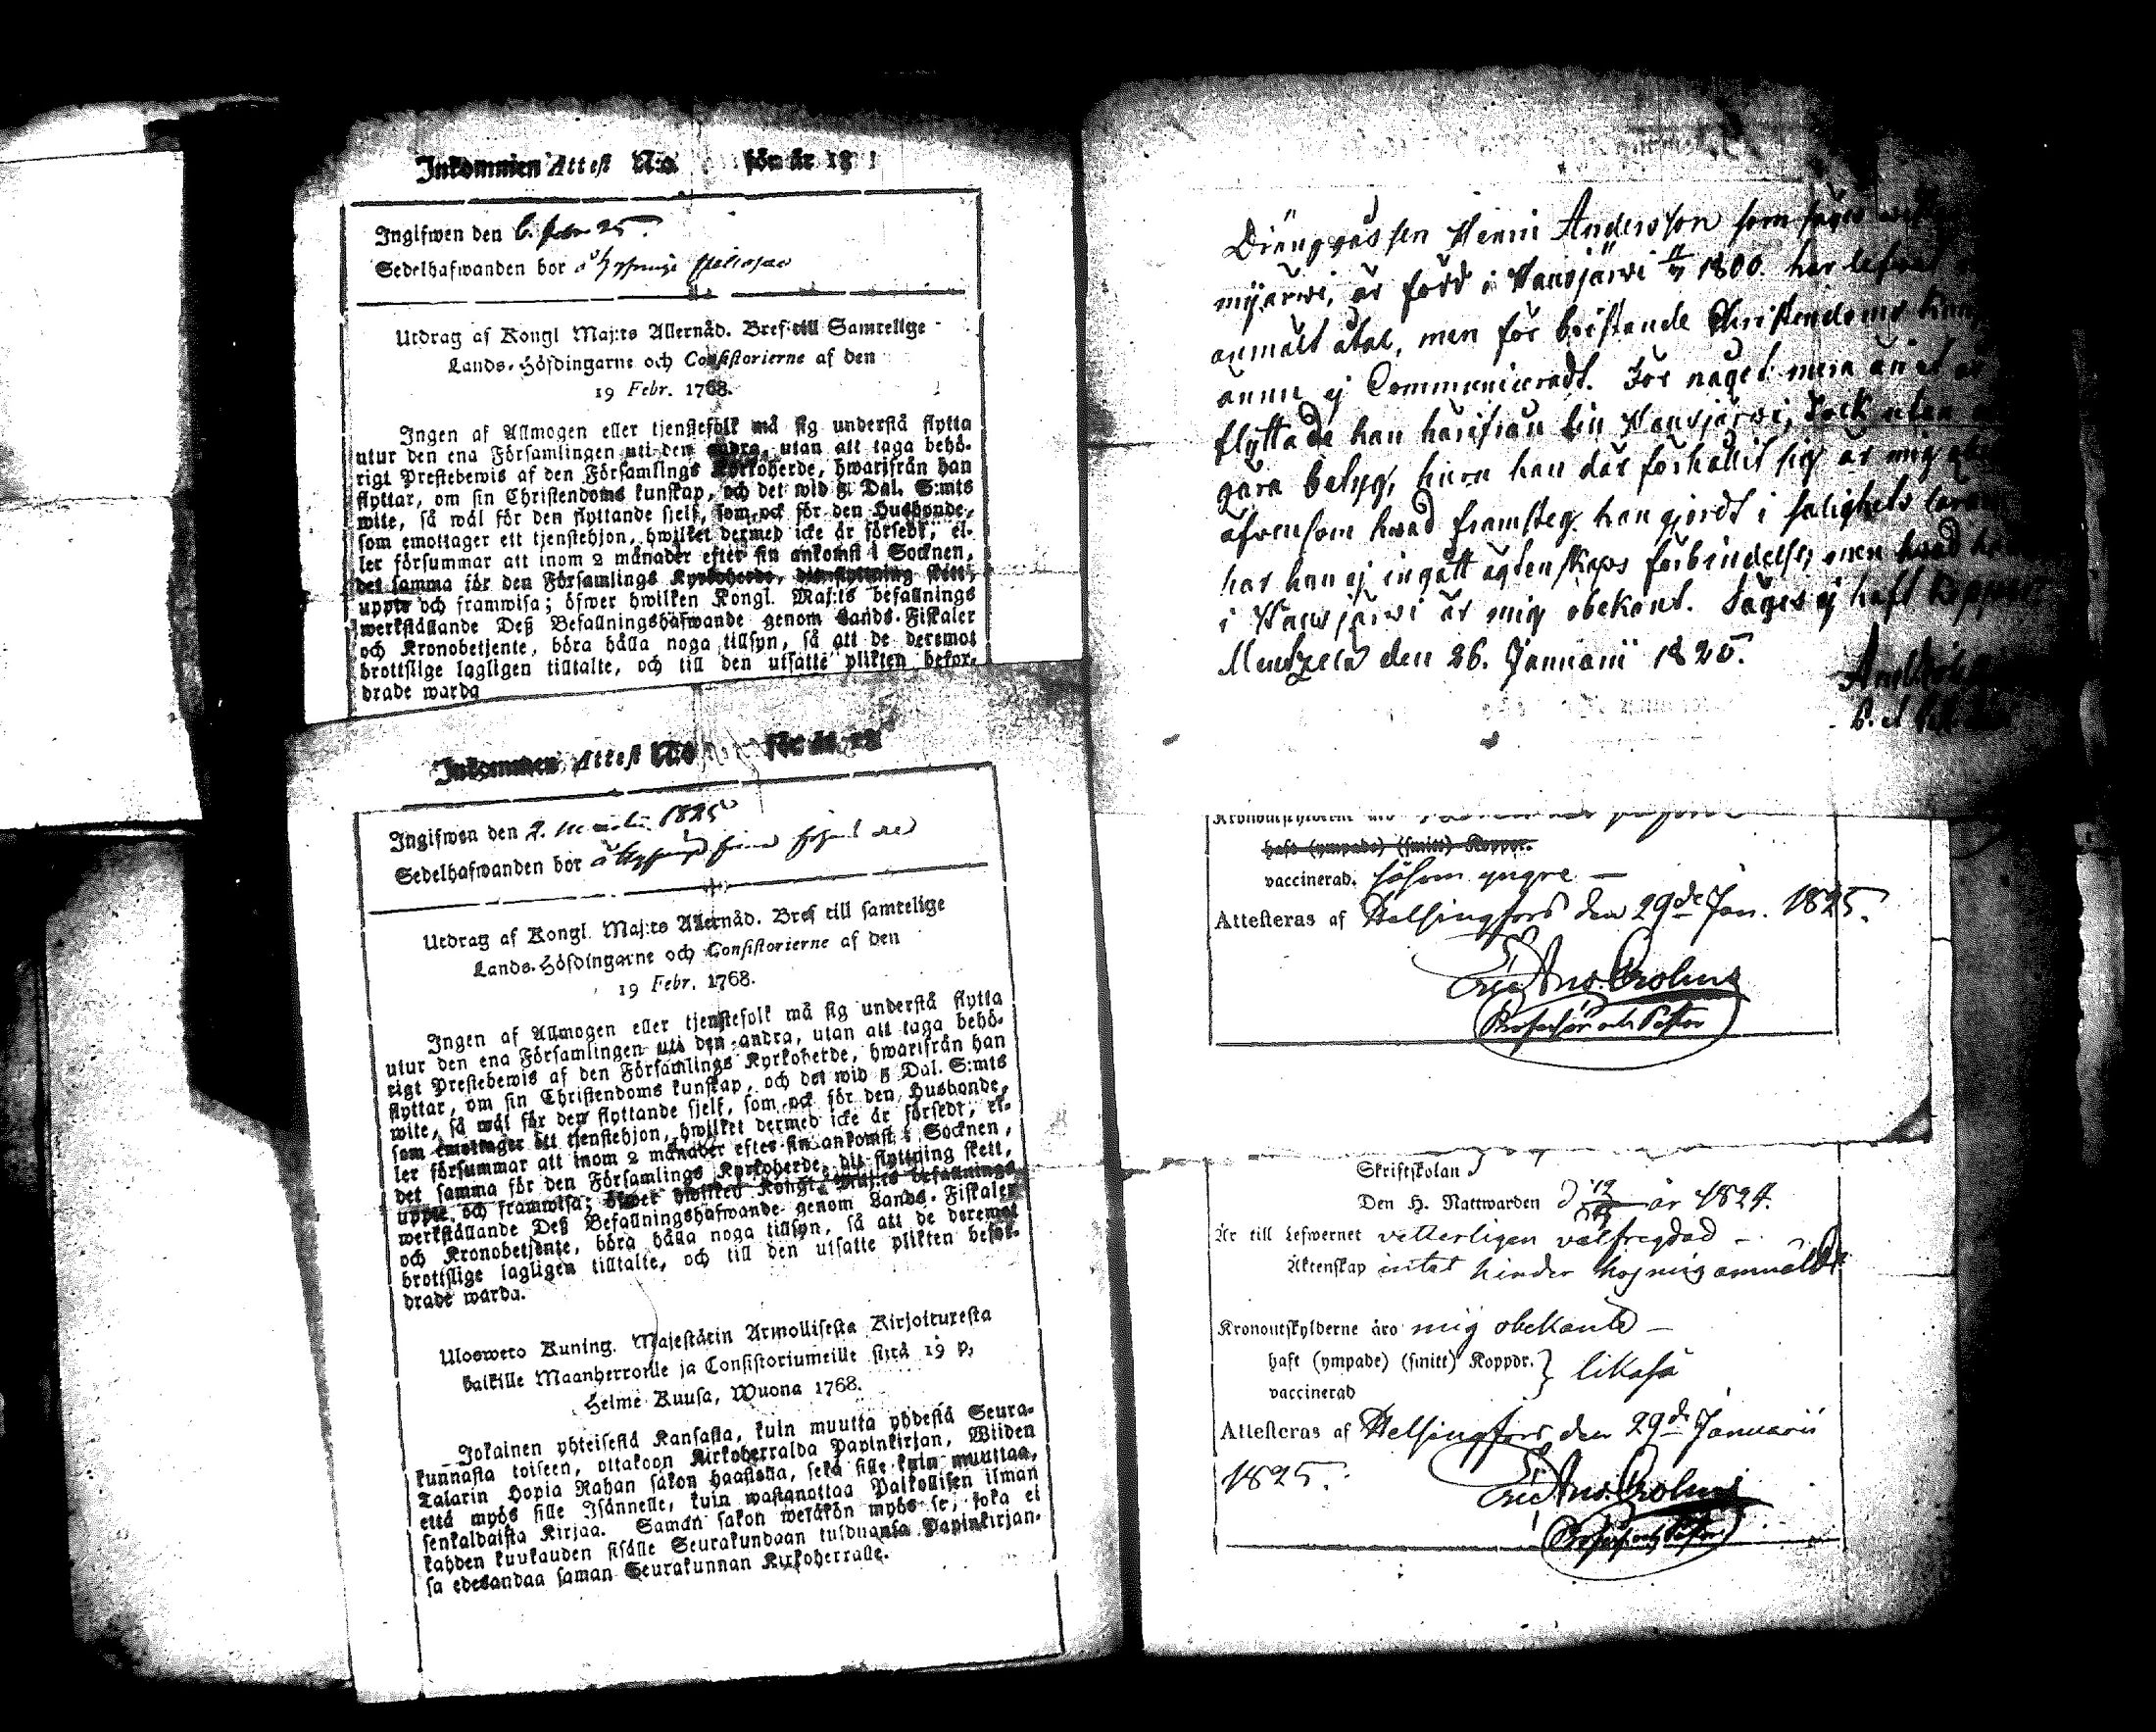 Inkommen Attest N:o för år 18
Ingifwen den 6. febr 25.
Sedelhafwanden bor å
Utdrag af Kongl Maj:ts Allernåd. Bref till Samtelige
Lands-Höfdingarne och Consistorierne af den
19 Febr. 1768.
Ingen af Allmogen eller tjenstefolk må sig understå flytta
utur den ena Församlingen uti den andra, utan att taga behö-
rigt Prestebewis af den Församlings Kyrkoherde, hwarifrån han
flyttar, om sin Christendoms kunskap, och det wid 5 Dal. S:mts
wite, så wäl för den flyttande sjelf, som ock för den Husbonde,
som emottager ett tjenstehjon, hwilket dermed icke är försedt, el-
ler försummar att inom 2 månader efter sin ankomst i Socknen,
det samma för den Församlings Kyrkoherde, dit flyttning skett,
uppte och framwisa; öfwer hwilken Kongl. Maj:ts befallnings
werkställande Deß Befallningshafwande genom Lands-Fiskaler
och Kronobetjente, böra hålla noga tillsyn, så att de deremot
brottslige lagligen tilltalte, och till den utsatte plikten befor-
drade warda
Inkommen Attest N:o för år 18
Ingifwen den 2. 1825
Sedelhafwanden bor å
Utdrag af Kongl. Maj:ts Allernåd. Bref till samtelige
Lands-Höfdingarne och Consistorierne af den
19 Febr. 1768.
Ingen af Allmogen eller tjenstefolk må sig understå flytta
utur den ena Församlingen uti den andra, utan att taga behö-
rigt Prestebewis af den Församlings Kyrkoherde, hwarifrån han
flyttar, om sin Christendoms kunskap, och det wid 5 Dal. S:mts
wite, så wäl för den flyttande sjelf, som ock för den Husbonde,
som emottager ett tjenstehjon, hwilket dermed icke är försedt, el-
ler försummar att inom 2 månader efter sin ankomst i Socknen,
det samma för den Församlings Kyrkoherde, dit flyttning skett,
uppte och framwisa; öfwer hwilken Kongl. Maj:ts befallnings
werkställande Deß Befallningshafwande genom Lands-Fiskaler
och Kronobetjente, böra hålla noga tillsyn, så att de deremot
brottslige lagligen tilltalte, och till den utsatte plikten befor-
drade warda.
Ulosweto Kuning. Majestätin Armollisesta Kirjoituxesta
kaikille Maanherroille ja Consistoriumeille siitä 19 p,
Helme Kuusa, Wuona 1768.
Jokainen yhteisestä Kansasta, kuin muutta yhdestä Seura-
kunnasta toiseen, ottakoon Kirkoherralda Papinkirjan, Wiiden
Talarin Hopia Rahan sakon haastolla, sekä sille kuin muuttaa,
että myös sille Isännelle, kuin wastanottaa Palkollisen ilman
senkaldaista Kirjaa. Saman sakon wetäkön myös se, joka ei
kahden kuukauden sisälle Seurakundaan tulduansa Papinkirjan-
sa edesandaa saman Seurakunnan Kirkoherralle.
Dränggåssen Henric Andersson som säges
är född i Hausjärwi 1800. har lefwat
anmält åtal, men för bristande Christendoms
ännu ej Communiceradt. För något mera än et år
flyttade han härifrån till Hausjärwi, dock utan
göra betyg, huru han där förhållit sig är mig
äfvensom hwad framsteg han gjordt i salighets
har han ej ingått ägtenskaps förbindelse, men hvad
i Hausjärwi är mig obekant. Säges ej haft Koppor
Mentzelä den 26. Januarii 1825.
haft (ympade) (smitt) Koppor.
vaccinerad. såsom yngre —
Attesteras af Helsingfors den 29de Jan. 1825.
Professor och Pastor
Skriftskolan
Den H. Nattwarden d 12 år 1824.
Är till Lefwernet vetterligen välfregdad —
Äktenskap intet hinder hos mig anmäldt
Kronoutskylderne äro mig obekante —
haft (ympade) (smitt) Koppor. } likaså
vaccinerad
Attesteras af Helsingfors den 29de Januarii
1825.